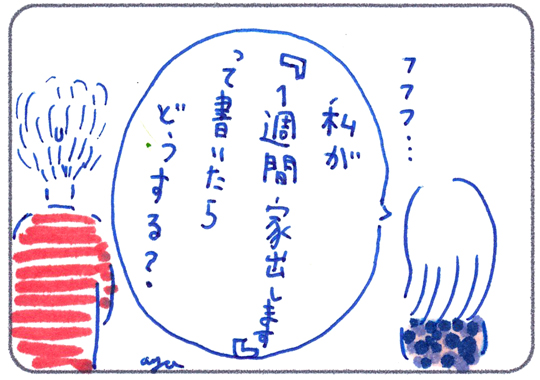 フフフ…
私が
『1週間家出します』
って書いたら
どうする？
aya